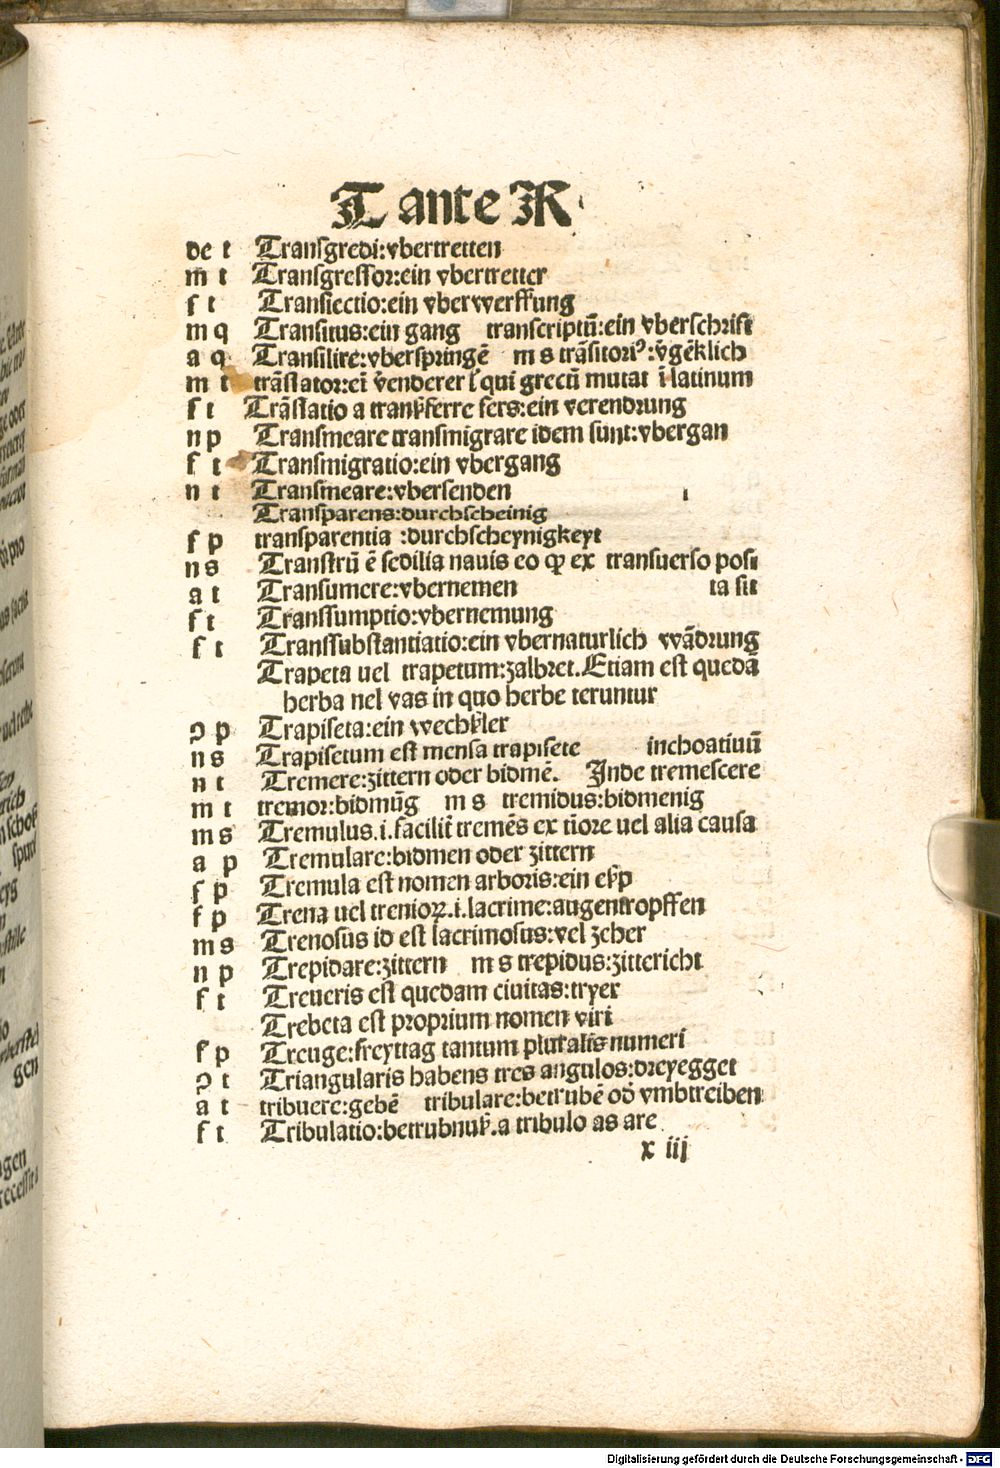 T ante R
de t Transgredi:vbertretten
m̄ t Transgressor:ein vbertretter
f t Transiectio:ein vberwerffung
m q Transitus:ein gang transcriptū:ein vberschrift
a q Transilire:vberspringē m s trāsitoriꝰ:v̄gēklich
m t trāslator:eī v̄enderer qui grecū mutat ī latinum
f t Trāslatio a transferre fers:ein verendrung
n p Transmeare transmigrare idem sunt:vbergan
f t Transmigratio:ein vbergang
n t Transmeare:vbersenden
Transparens:durchscheinig
f p transparentia :durchscheynigkeyt
n s Transtrū ē sedilia nauis eo ꝙ ex transuerso posi
a t Transumere:vbernemen ta sit
f t Transsumptio:vbernemung
f t Transsubstantiatio:ein vbernaturlich wādrung
Trapeta uel trapetum:zalbret.Etiam est quedā
herba nel vas in quo herbe teruntur
ꝯ p Trapiseta:ein wechßler
n s Trapisetum est mensa trapisete inchoatiuū
n t Tremere:zittern oder bidmē. Inde tremescere
m t tremor:bidmūg m s tremidus:bidmenig
m s Tremulus.i.facilit̄ tremēs ex tīore uel alia causa
a p Tremulare:bidmen oder zittern
f p Tremula est nomen arboris:ein eßp
f p Trena uel treniorꝝ.i.lacrime:augentropffen
m s Trenosus id est lacrimosus:vel zeher
n p Trepidare:zittern m s trepidus:zittericht
f t Treueris est quedam ciuitas:tryer
Trebeta est proprium nomen viri
f p Treuge:freyttag tantum pluralis numeri
ꝯ t Triangularis habens tres angulos:dreyegget
a t tribuere:gebē tribulare:betrubē od̄ vmbtreiben
f t Tribulatio:betrubnuß.a tribulo as are
x iij
Digitalisierung gefördert durch die Deutsche Forschungsgemeinschaft - DFG